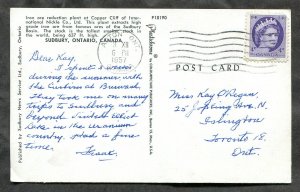 Iron ore reduction plant at Copper Cliff of International Nickle Co. Ltd. This plant extracts high
grade iron ore from famous ores of the Sudbury
Basin. The stack is the tallest smelter, stack in
the world, being 637 ft. high.
SUDBURY, ONTARIO, CANADA
P18190
POST CARD
XII
1957
CANADA
Published by Sudbury News Service Ltd., Sudbury, Ont.
Dear Kay,
I spent 2 weeks
during the summer with
the Curtins at Burwash.
They took me on many
trips to Sudbury and
beyond Elliot
Lake in the uranium
country. Had a fine
time.
Miss Kay O'Regan,
25 Ave.,
Islington
Toronto 18
Ont.